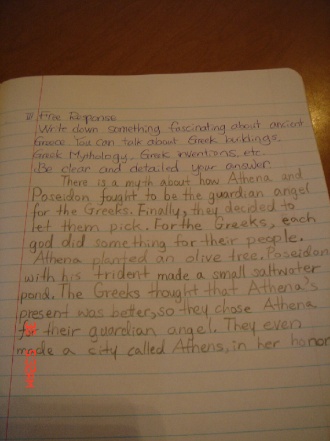 III Free Response
Write down something fascinating about ancient
Greece. You can talk about Greek buildings,
Greek Mythology, Greek inventions, etc.
Be clear and detailed your answer
There is a myth about how Athena and
Poseidon fought to be the guardian angel
for the Greeks. Finally, they decided to
let them pick. For the Greeks, each
god did something for their people.
Athena planted an olive tree. Poseidon
with his trident made a small saltwater
pond. The Greeks thought that Athena's
present was better, so they chose Athena
for their guardian angel. They even
made a city called Athens, in her honor